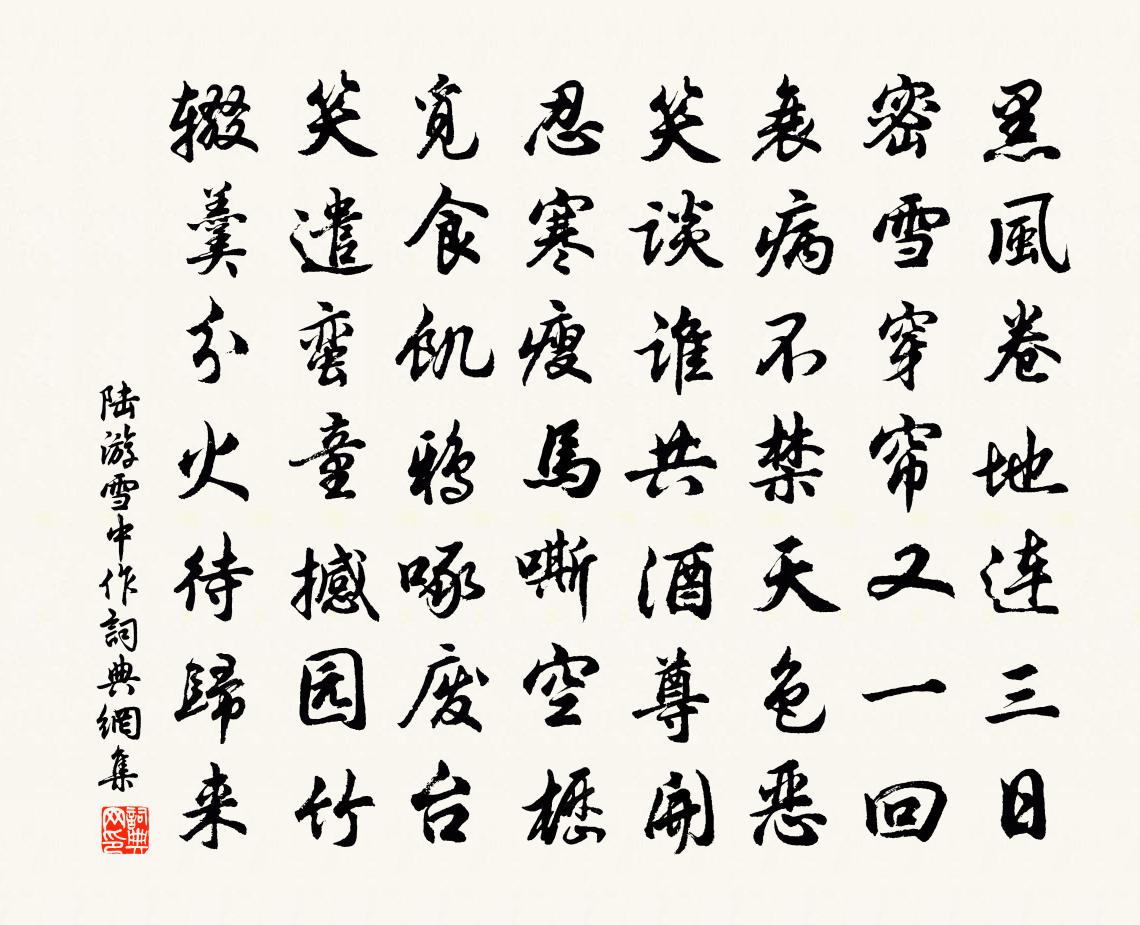 黑風卷地连三日
密雪穿帘又一回
衰病不禁天色恶
笑谈谁共酒尊開
忍寒瘦馬嘶空枥
觅食飢鸦啄废台
笑遣蛮童撼园竹
辍羹分火待歸来
陆游雪中作詞典網集
詞典网印